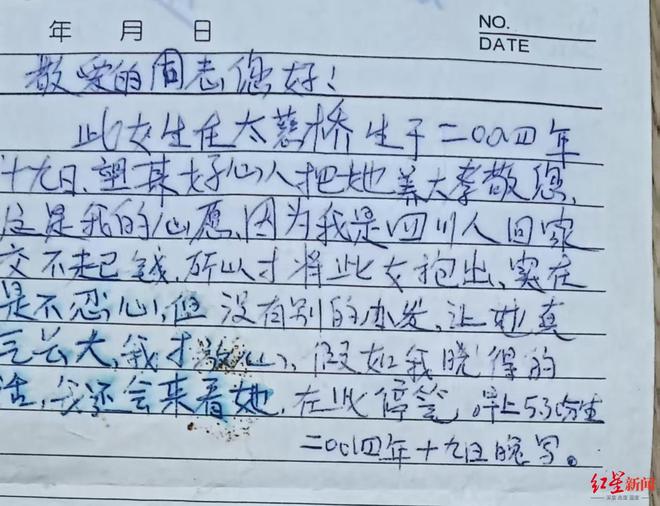 年 月 日
NO.
DATE
敬爱的同志您好!
此女生在太慈桥生于二00四年
十九日、望某好心人把她养大孝敬您,
这是我的心愿、因为我是四川人回家
交不起钱,所以才将此女抱出、实在
是不忍心,但没有别的办发,让她真
长大,我才放心、假如我晓得的
话,我还会来看她,在此停笔,早上5.30分生
二00四年十九日晚写。
红星新闻
深度 态度 温度